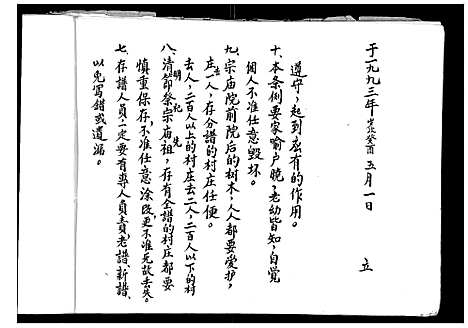 以免写错或遗漏。
七、存谱人员一定要有專人員責,老譜、新譜、
慎重保存,不准任意涂改,更不准无故丢失。
八、清明節祭祀宗庙祖先,存有全譜的村庄都要
去人,二百人以上的村庄去二人,二百人以下的村
庄去一人,存分譜的村庄任便。
九、宗庙院前院后的树木,人人都要爱护,
個人不准任意毁坏。
十、本条例要家喻户晓,老幼皆知,自觉
遵守,起到应有的作用。
于一九九三年岁次癸酉五月一日 立